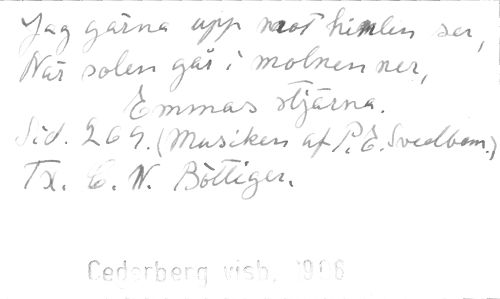 Jag gärna upp mot himlen ser,
När solen går i molnen ner,
Emmas stjärna.
Sid. 269. (Musiken af P. E. Svedbom.)
Tx. C. W. Böttiger.
Cederberg visb. 1906